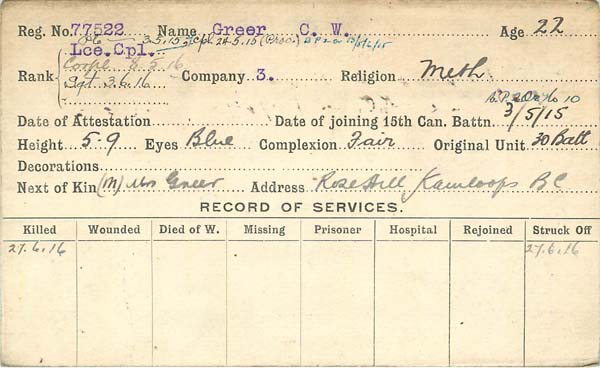 Reg. No. 77522 Name Greer C. W. Age 22
Pte 3.5.15 Cpl 24.5.15 (Prov.)
Lce.Cpl.
Corpl 8.5.16
Rank Sgt. 3.6.16 Company 3. Religion Meth
10
Date of Attestation Date of joining 15th Can. Battn. 3/5/15
Height 5-9 Eyes Blue Complexion Fair Original Unit 30 Batt
Decorations
Next of Kin (M) Mrs Greer Address Rose Hill Kamloops BC
RECORD OF SERVICES.
Killed Wounded Died of W. Missing Prisoner Hospital Rejoined Struck Off
27.6.16 27.6.16